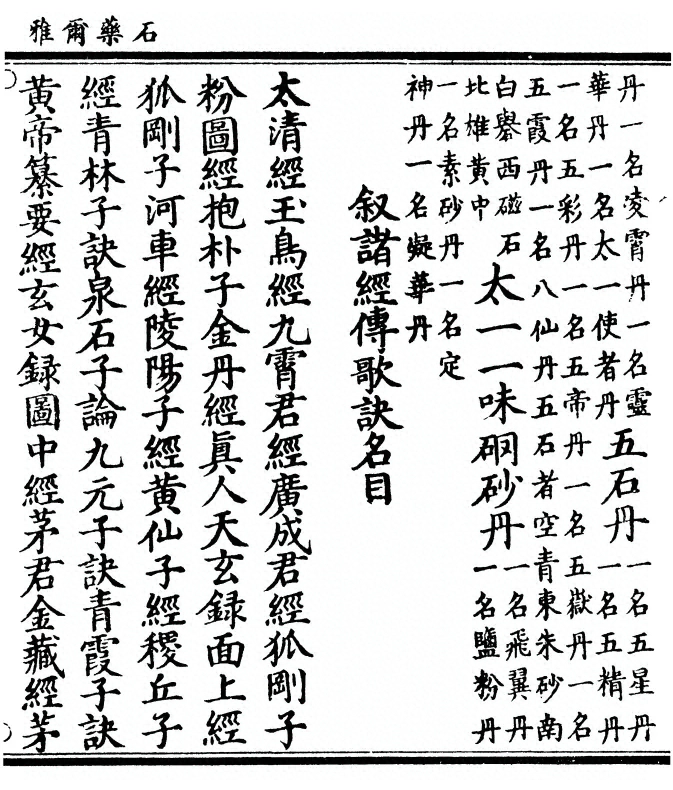 石藥爾雅
丹一名凌霄丹一名靈
華丹一名太一使者丹
五石丹
一名五星丹
一名五精丹
一名五彩丹一名五帝丹一名五嶽丹一名
五霞丹一名八仙丹五石者空青東朱砂南
白礜西磁石
北雄黄中
太一一味硇砂丹
一名飛翼丹
一名鹽粉丹
一名素砂丹一名定
神丹一名凝華丹
叙諸經傳歌訣名目
太清經玉鳥經九霄君經廣成君經狐剛子
粉圖經抱朴子金丹經眞人天玄録面上經
狐剛子河車經陵陽子經黄仙子經稷丘子
經青林子訣泉石子論九元子訣青霞子訣
黄帝纂要經玄女録圖中經茅君金藏經茅